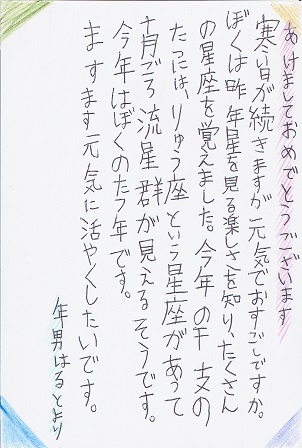 あけましておめでとうございます
寒い日が続きますが元気でおすごしですか。
ぼくは昨年星を見る楽しさを知り、たくさん
の星座を覚えました。今年の干支の
たつには、りゅう座という星座があって
十月ごろ流星群が見えるそうです。
今年はぼくのたつ年です。
ますます元気に活やくしたいです。
年男はるとより